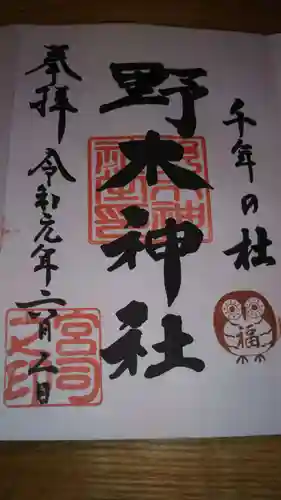 千年の杜
福
野木神社
奉拝
令和元年六月二日
宮司之印